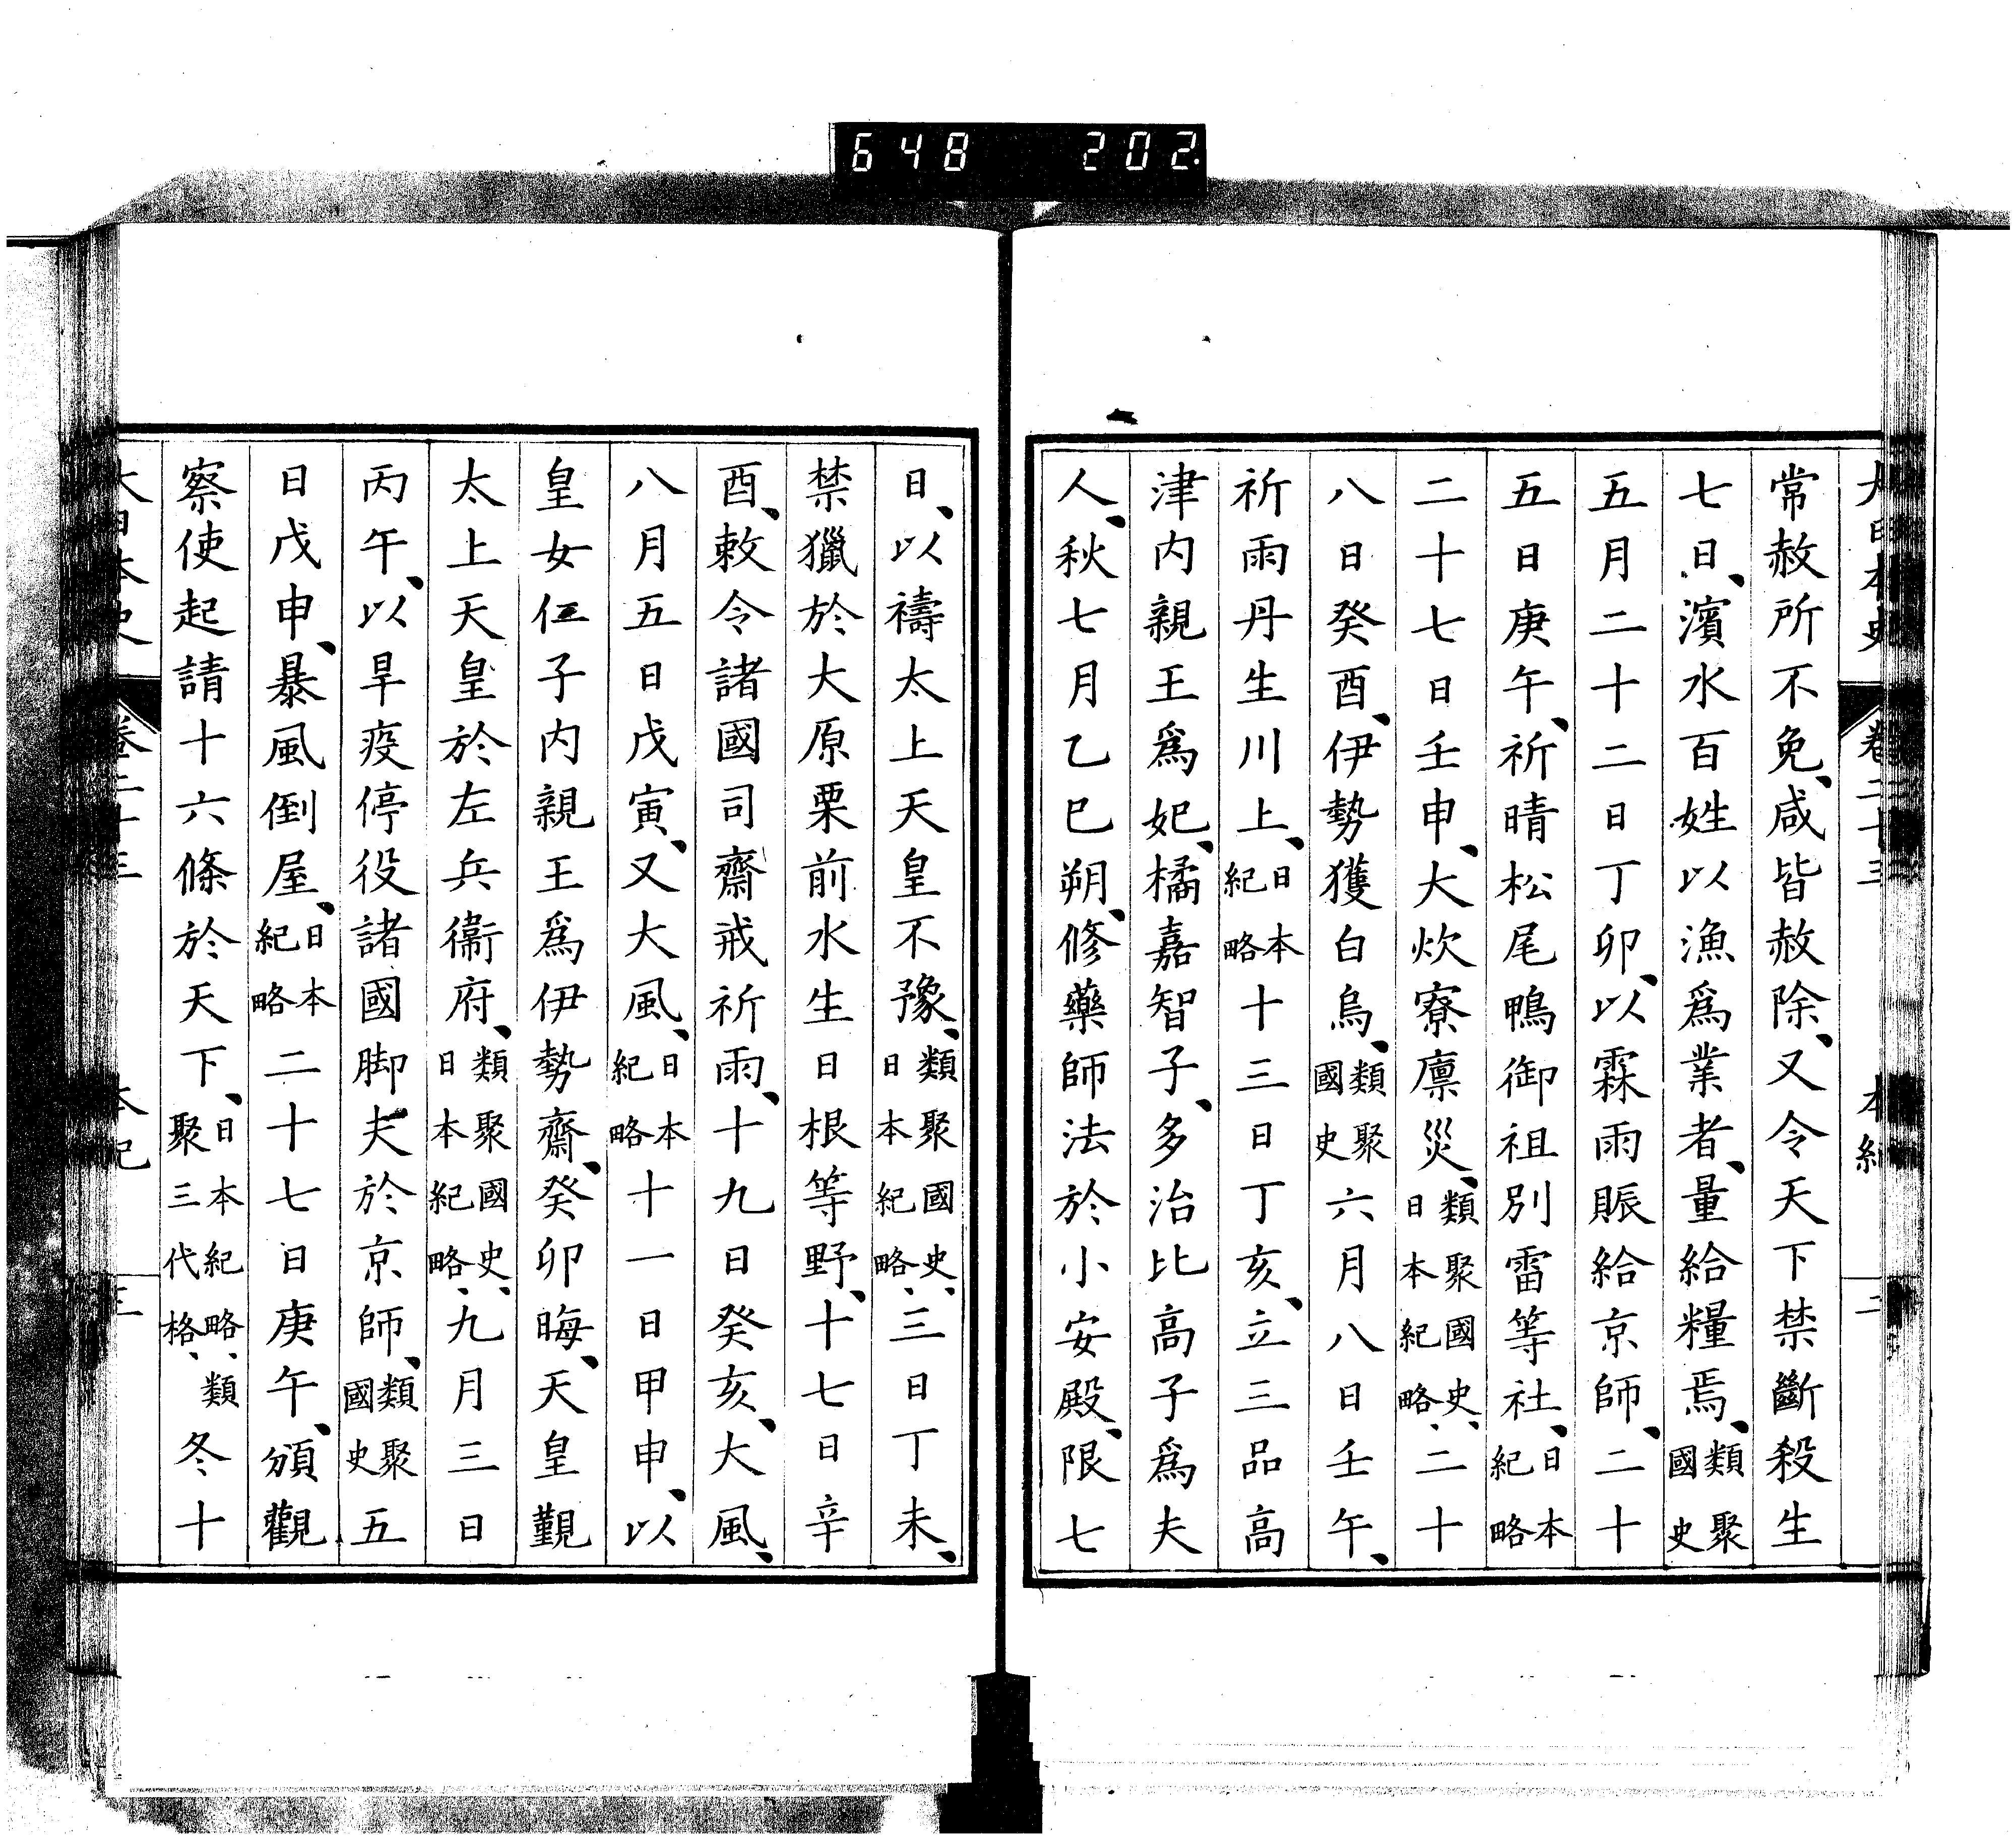 648 202
大日本史 卷二十三 本紀 二
常赦所不免、咸皆赦除、又令天下禁斷殺生
七日、濱水百姓以漁爲業者、量給糧焉、類聚國史
五月二十二日丁卯、以霖雨賑給京師、二十
五日庚午、祈晴松尾鴨御祖別雷等社、日本紀略
二十七日壬申、大炊寮廩災、類聚國史、日本紀略、二十
八日癸酉、伊勢獲白烏、類聚國史六月八日壬午、
祈雨丹生川上、日本紀略十三日丁亥、立三品高
津内親王爲妃、橘嘉智子、多治比高子爲夫
人、秋七月乙巳朔、修藥師法於小安殿、限七
日、以禱太上天皇不豫、類聚國史、日本紀略、三日丁未、
禁獵於大原栗前水生日根等野、十七日辛
酉、敕令諸國司齋戒祈雨、十九日癸亥、大風、
八月五日戊寅、又大風、日本紀略十一日甲申、以
皇女仁子内親王爲伊勢齋、癸卯晦、天皇覲
太上天皇於左兵衞府、類聚國史、日本紀略、九月三日
丙午、以旱疫停役諸國脚夫於京師、類聚國史五
日戊申、暴風倒屋、日本紀略二十七日庚午、頒觀
察使起請十六條於天下、日本紀略、類聚三代格、冬十
大日本史 卷二十三 本紀 三